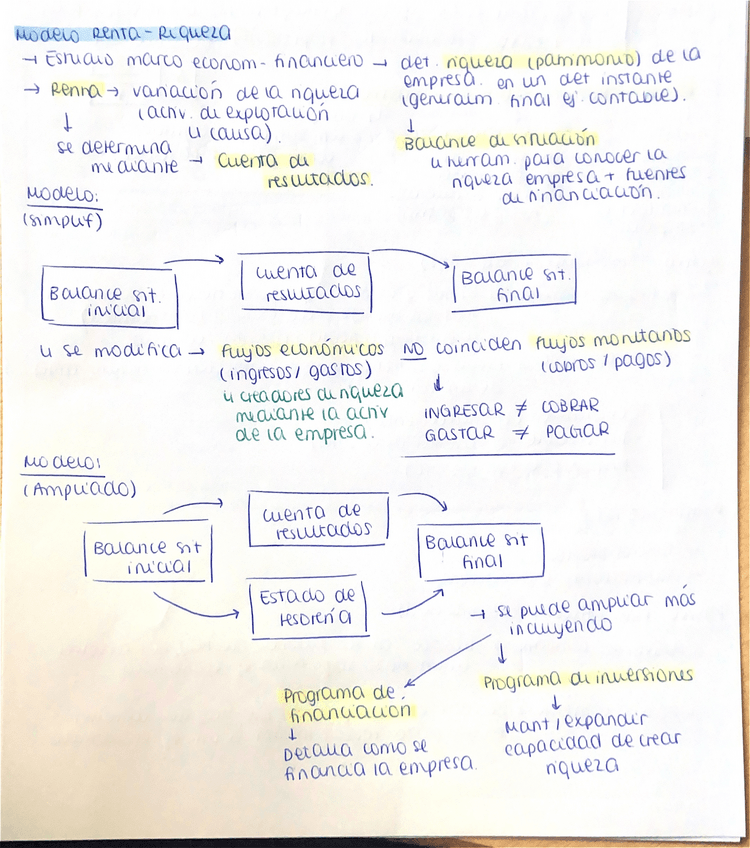 Modelo Renta-Riqueza
→ Estudio marco econom-financiero → det. riqueza (patrimonio) de la
empresa. en un det instante
(generalm. final ej. contable).
↓
Balance de situación
↳ herram. para conocer la
riqueza empresa + fuentes
de financiación.
→ Renta → variación de la riqueza
(activ. de explotación
↳ causa).
↓
se determina
mediante → Cuenta de
resultados.
Modelo:
(simplif)
Balance sit.
inicial
Cuenta de
resultados
Balance sit.
final
↳ se modifica → flujos económicos NO coinciden flujos monetarios
(ingresos / gastos)
(cobros / pagos)
↳ creadores de riqueza
mediante la activ
de la empresa.
↓
INGRESAR ≠ COBRAR
GASTAR ≠ PAGAR
Modelo:
(Ampliado)
Balance sit
inicial
Cuenta de
resultados
Estado de
tesorería
Balance sit
final
→ se puede ampliar más
incluyendo
Programa de
financiación
↓
Detalla como se
financia la empresa.
↓
Programa de inversiones
↓
Mant / expandir
capacidad de crear
riqueza